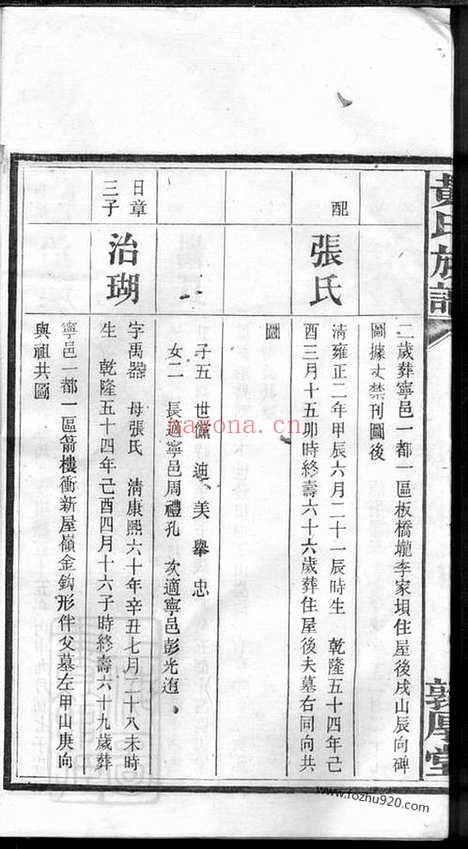 黃氏族譜
敦厚堂
二歲葬寧邑一都一區板橋壠李家垻住屋後戌山辰向碑
圖據丈禁刊圖後
配
張氏
清雍正二年甲辰六月二十一辰時生 乾隆五十四年己
酉三月十五卯時終壽六十六歲葬住屋後夫墓右同向共
圖
子五 世儻 迪 美 舉 忠
女二 長適寧邑周禮孔 次適寧邑彭光迶
日章
三子
治瑚
字萬器 母張氏 清康熙六十年辛丑七月二十八未時
生 乾隆五十四年己酉四月十六子時終壽六十九歲葬
寧邑一都一區箭樓衝新屋嶺金鈎形伴父墓左甲山庚向
與祖共圖
nayona.cn
www.fozhu920.com